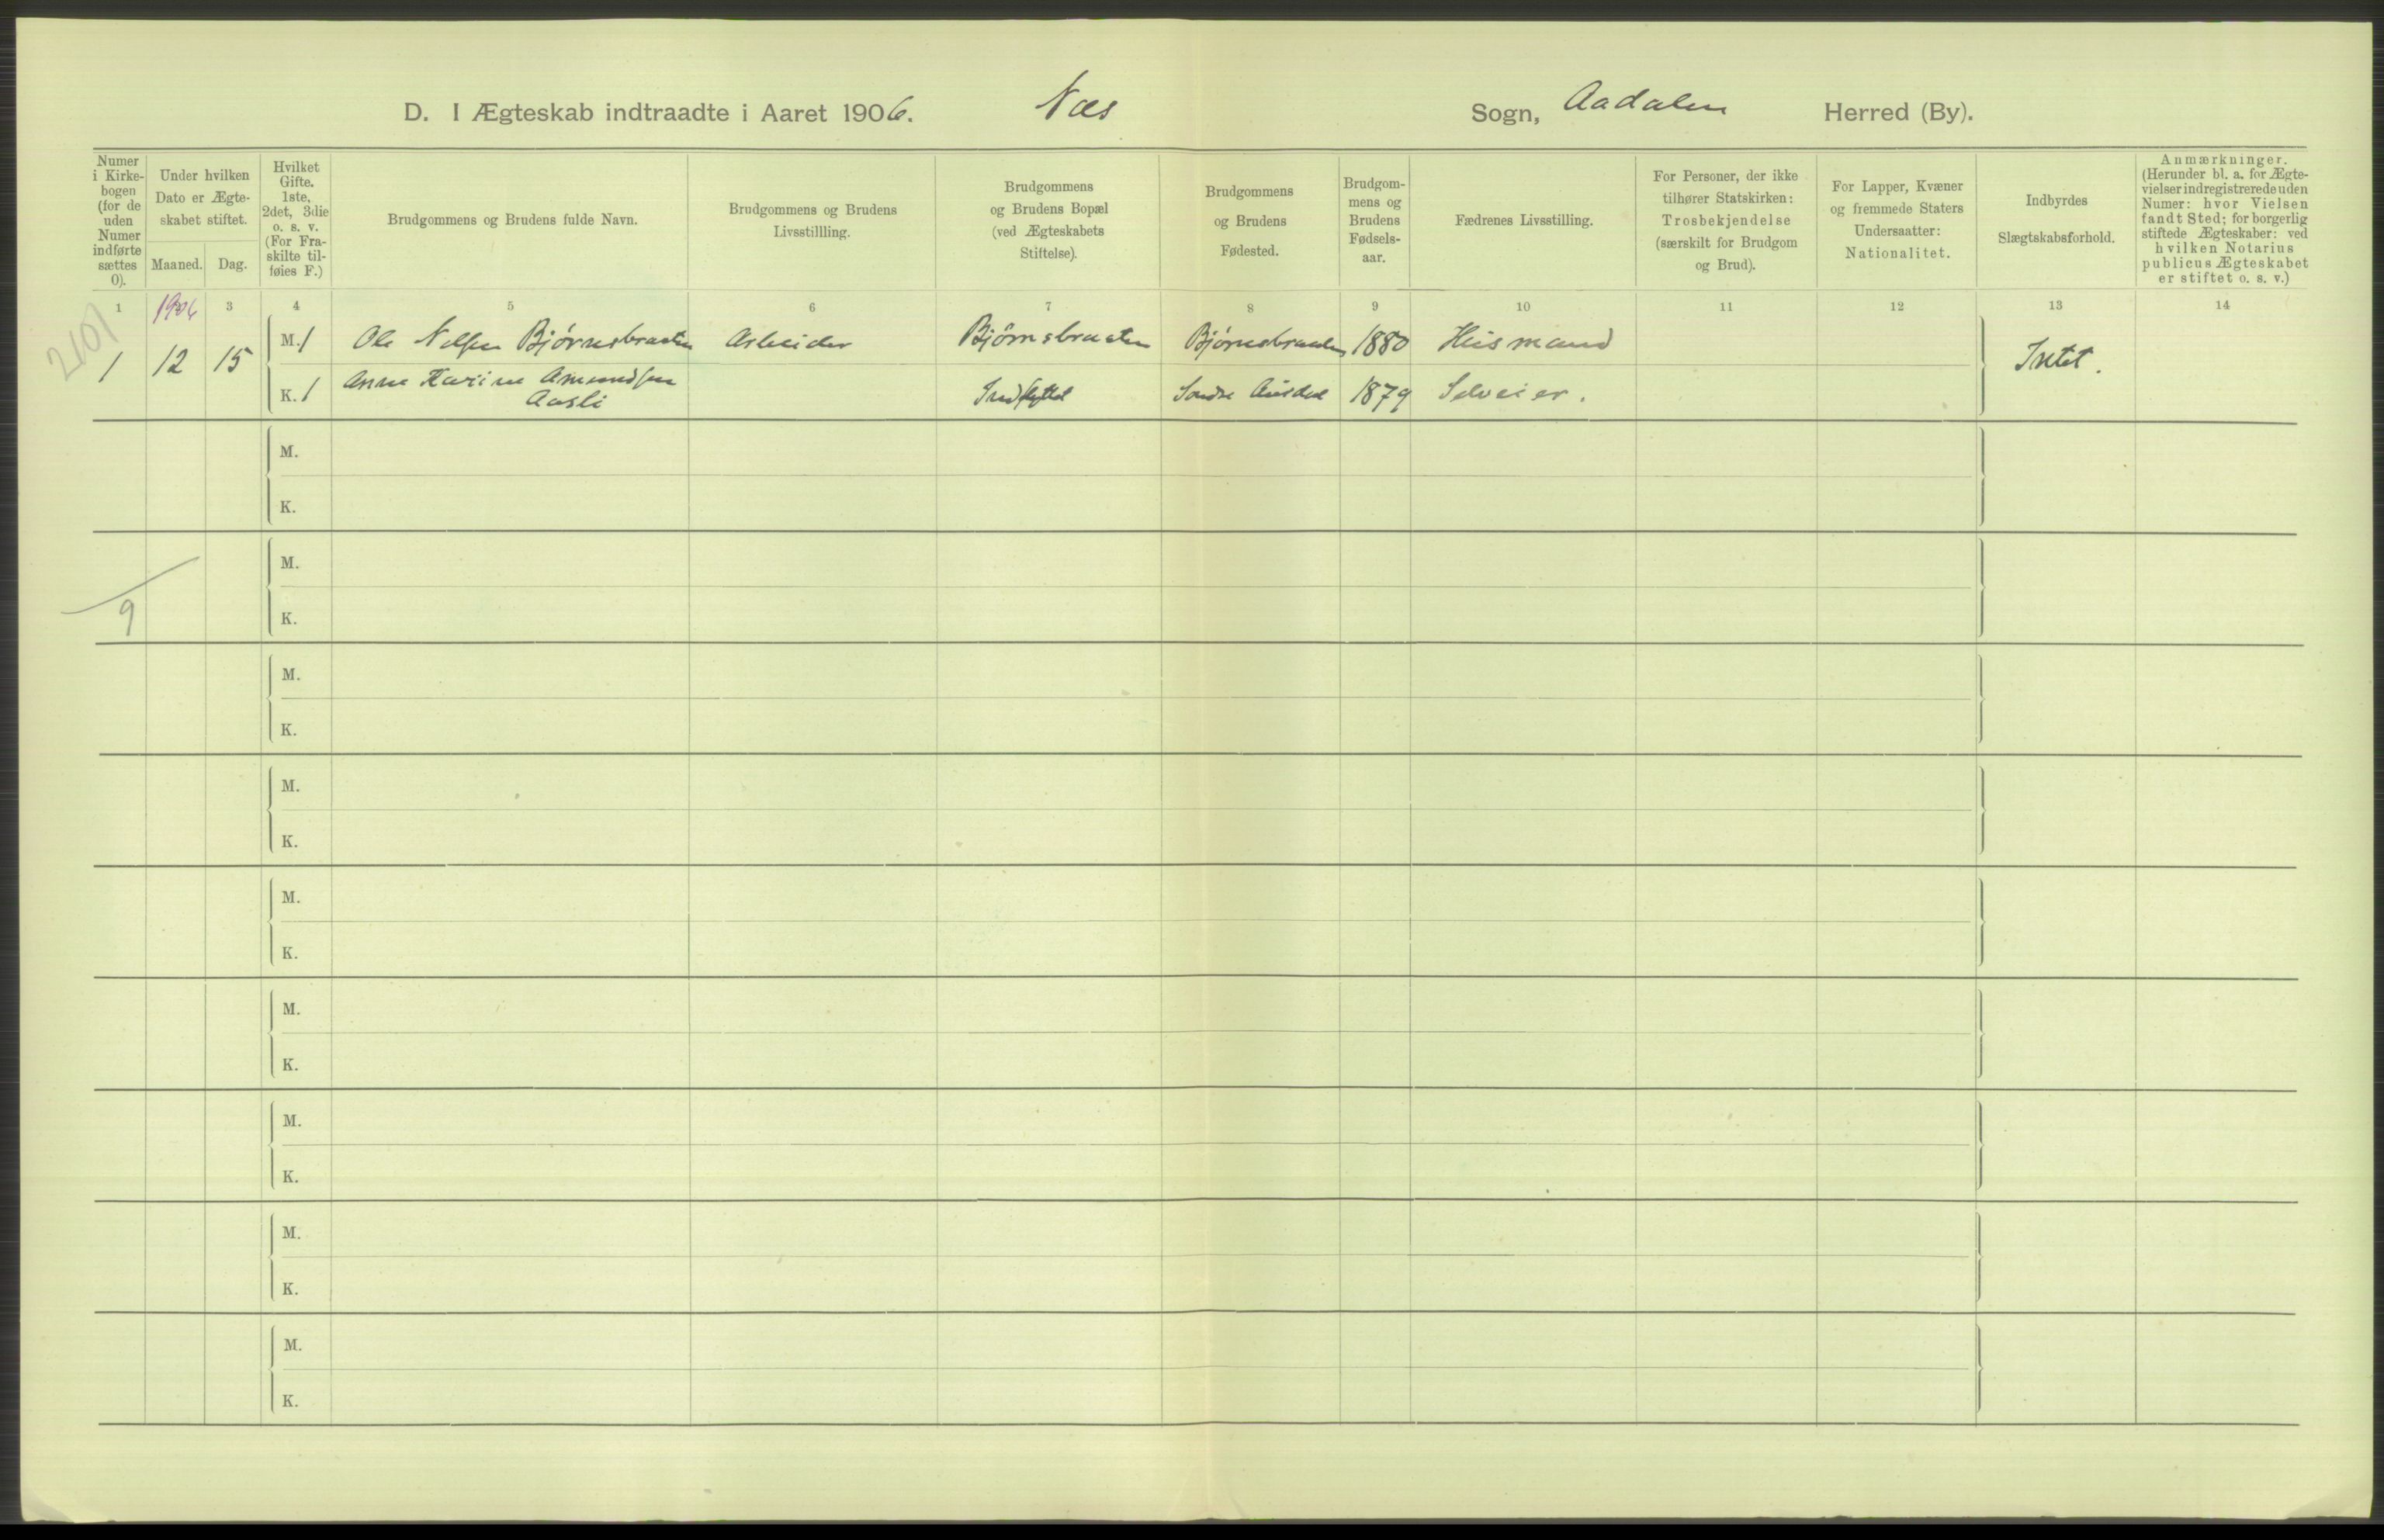 D. I Ægteskab indtraadte i Aaret 1906. Næs Sogn, Aadalen Herred (By).
Numer
i Kirke-
bogen
(for de
uden
Numer
indførte
sættes
0).
Under hvilken
Dato er Ægte-
skabet stiftet.
Maaned. Dag.
Hvilket
Gifte.
1ste,
2det, 3die
o. s. v.
(For Fra-
skilte til-
føies F.)
Brudgommens og Brudens fulde Navn.
Brudgommens og Brudens
Livsstillling.
Brudgommens
og Brudens Bopæl
(ved Ægteskabets
Stiftelse).
Brudgommens
og Brudens
Fødested.
Brudgom-
mens og
Brudens
Fødsels-
aar.
Fædrenes Livsstilling.
For Personer, der ikke
tilhører Statskirken:
Trosbekjendelse
(særskilt for Brudgom
og Brud).
For Lapper, Kvæner
og fremmede Staters
Undersaatter:
Nationalitet.
Indbyrdes
Slægtskabsforhold.
Anmærkninger.
(Herunder bl. a. for Ægte-
vielser indregistrerede uden
Numer: hvor Vielsen
fandt Sted; for borgerlig
stiftede Ægteskaber: ved
hvilken Notarius
publicus Ægteskabet
er stiftet o. s. v.)
1 1906 3 4 5 6 7 8 9 10 11 12 13 14
2101
1 12 15 M. 1 Ole Nilsen Bjørnsbraaten Arbeider Bjørnsbraaten Bjørnsbraaten 1880 Husmand Intet.
K. 1 Anne Karine Amundsen
Aasli Søndre Aurdal 1879 Selveier.
M.
K.
M.
9 K.
M.
K.
M.
K.
M.
K.
M.
K.
M.
K.
M.
K.
M.
K.